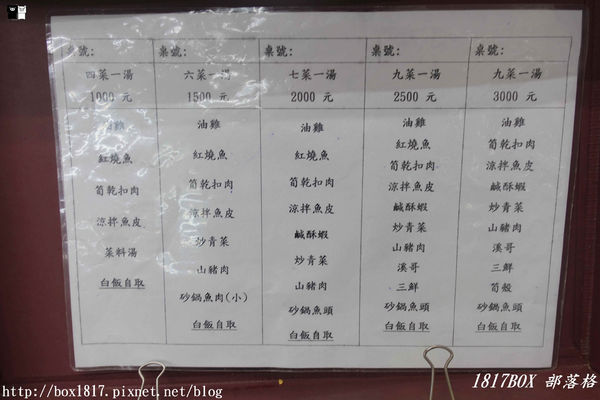 桌號:
四菜一湯
1000 元
油雞
紅燒魚
筍乾扣肉
涼拌魚皮
菜料湯
白飯自取
桌號:
六菜一湯
1500 元
油雞
紅燒魚
筍乾扣肉
涼拌魚皮
炒青菜
山豬肉
砂鍋魚肉(小)
白飯自取
桌號:
七菜一湯
2000 元
油雞
紅燒魚
筍乾扣肉
涼拌魚皮
鹹酥蝦
炒青菜
山豬肉
砂鍋魚頭
白飯自取
桌號:
九菜一湯
2500 元
油雞
紅燒魚
筍乾扣肉
涼拌魚皮
鹹酥蝦
炒青菜
山豬肉
溪哥
三鮮
砂鍋魚頭
白飯自取
桌號:
九菜一湯
3000 元
油雞
筍乾扣肉
涼拌魚皮
鹹酥蝦
炒青菜
山豬肉
溪哥
三鮮
筍殼
砂鍋魚頭
白飯自取
http://box1817.pixnet.net/blog
1817BOX 部落格